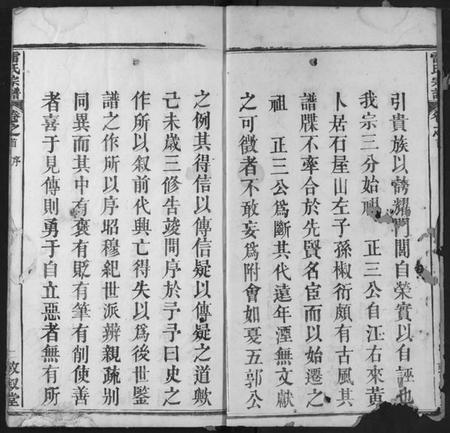 引貴族以誇耀門閭自榮實以自誣也
我宗三分始祖 正三公自江右來黃
卜居石屋山左子孫椒衍頗有古風其
譜牒不牽合於先賢名宦而以始遷之
祖 正三公為斷其代遠年湮無文獻
之可徵者不敢妄為附會如夏五郭公
之例其得信以傳信疑以傳疑之道歟
己未歲三修告竣問序於予予曰史之
作所以叙前代興亡得失以為後世鑒
譜之作所以序昭穆紀世派辨親疏別
同異而其中有褒有貶有筆有削使善
者喜于見傳則勇于自立惡者無有所
雷氏宗譜
卷之首 序
一 敦叙堂
雷氏宗譜